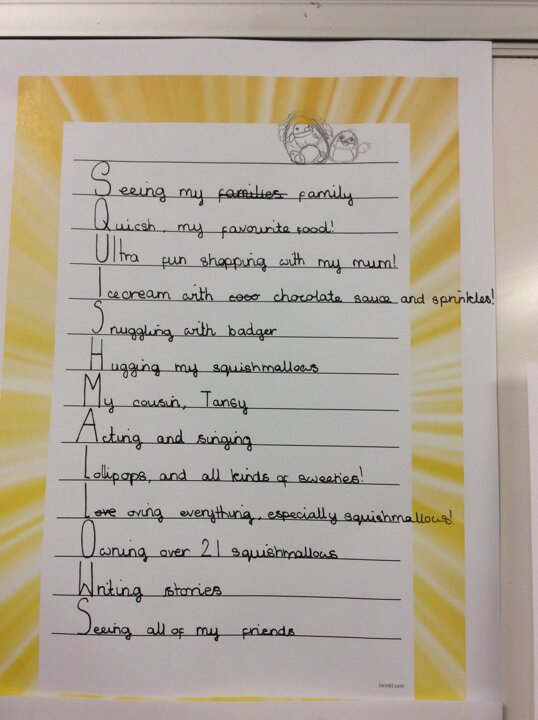 Seeing my families family
Quicsh, my favourite food!
Ultra fun shopping with my mum!
Icecream with coco chocolate sauce and sprinkles!
Snuggling with badger
Hugging my squishmallows
My cousin, Tansy
Acting and singing
Lollipops, and all kinds of sweeties!
Love oving everything, especially squishmallows!
Owning over 21 squishmallows
Writing stories
Seeing all of my friends
twinkl.com